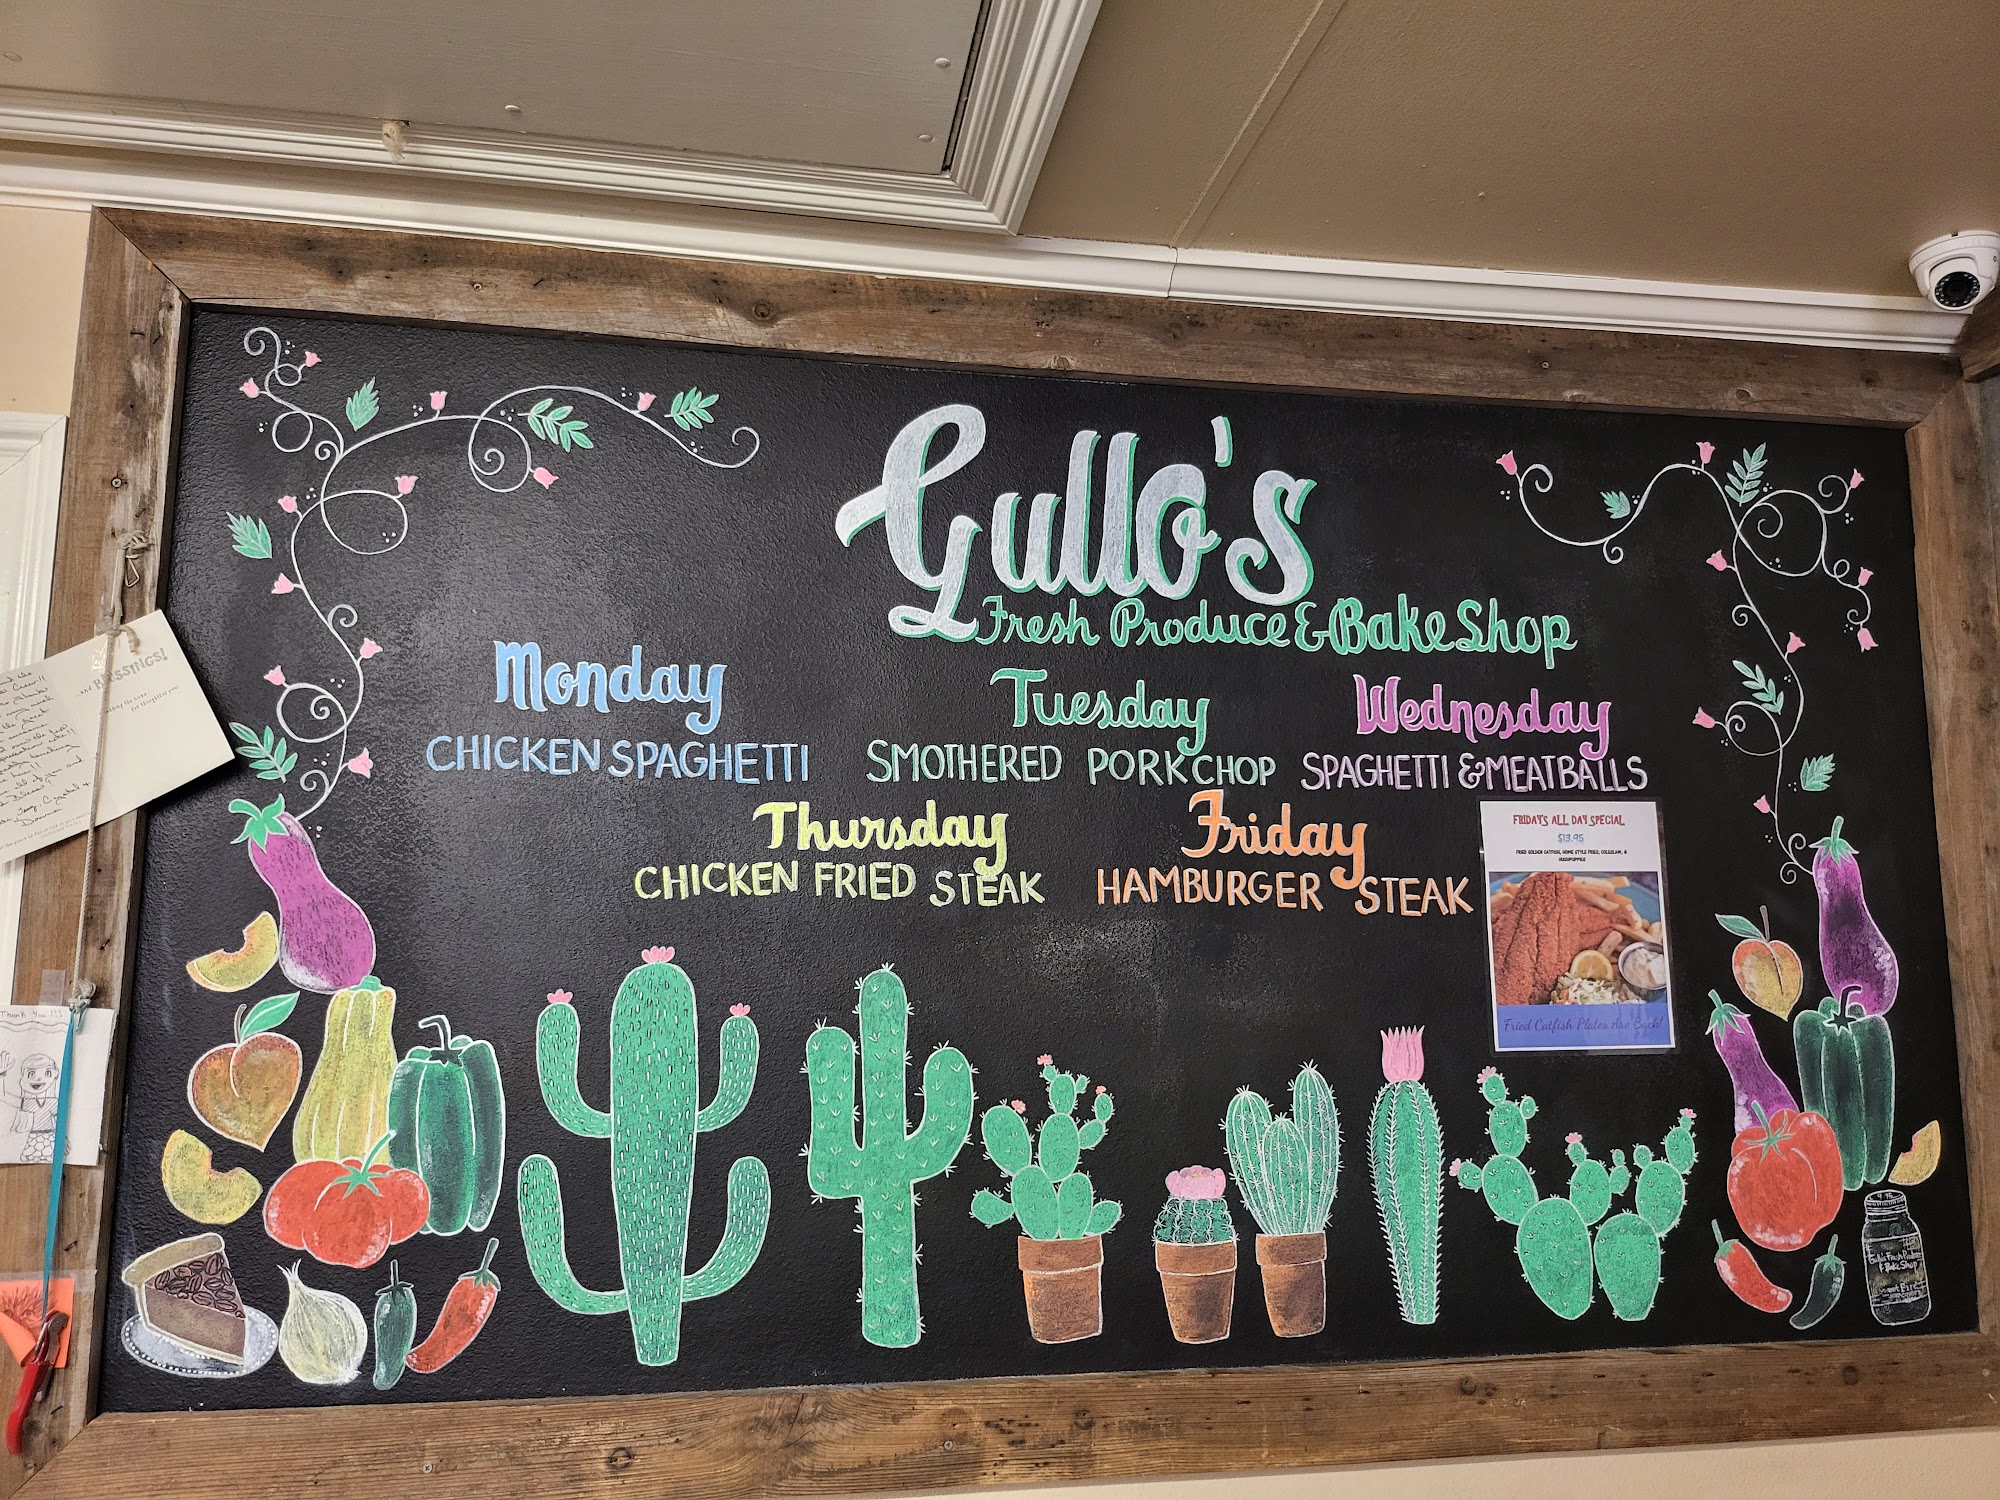 Gullo's
Fresh Produce & Bake Shop
Monday
CHICKEN SPAGHETTI
Tuesday
SMOTHERED PORK CHOP
Wednesday
SPAGHETTI & MEATBALLS
Thursday
CHICKEN FRIED STEAK
Friday
HAMBURGER STEAK
FRIDAY'S ALL DAY SPECIAL
$13.95
FRIED GOLDEN CATFISH, HOME STYLE FRIES, COLESLAW, &
HUSHPUPPIES
Fried Catfish Plates Are Back!
Gullo's Fresh Produce
& Bake Shop
...and BLESSINGS!
Thank You!!!